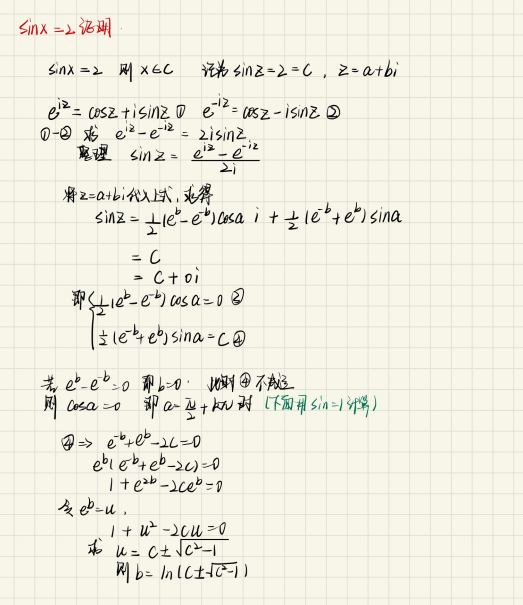 sinx=2 证明
sinx=2 则 x∈C 记为 sinz=2=C, z=a+bi
e^{iz}=cosz+isinz ① e^{-iz}=cosz-isinz ②
①-② 求 e^{iz}-e^{-iz}=2isinz
整理 sinz=\frac{e^{iz}-e^{-iz}}{2i}
将z=a+bi代入上式,求得
sinz=\frac{1}{2}(e^b-e^{-b})cosa i+\frac{1}{2}(e^{-b}+e^b)sina
=C
=C+0i
即{\frac{1}{2}(e^b-e^{-b})cosa=0 ③
\frac{1}{2}(e^{-b}+e^b)sina=C ④
若 e^b-e^{-b}=0 即b=0. 此时④不成立
则 cosa=0 即 a=\frac{π}{2}+kπ 时 (下面用sin=1计算)
④⇒ e^{-b}+e^b-2C=0
e^b(e^{-b}+e^b-2C)=0
1+e^{2b}-2Ce^b=0
令 e^b=u,
1+u^2-2Cu=0
求 u=C±\sqrt{C^2-1}
则 b=ln(C±\sqrt{C^2-1})